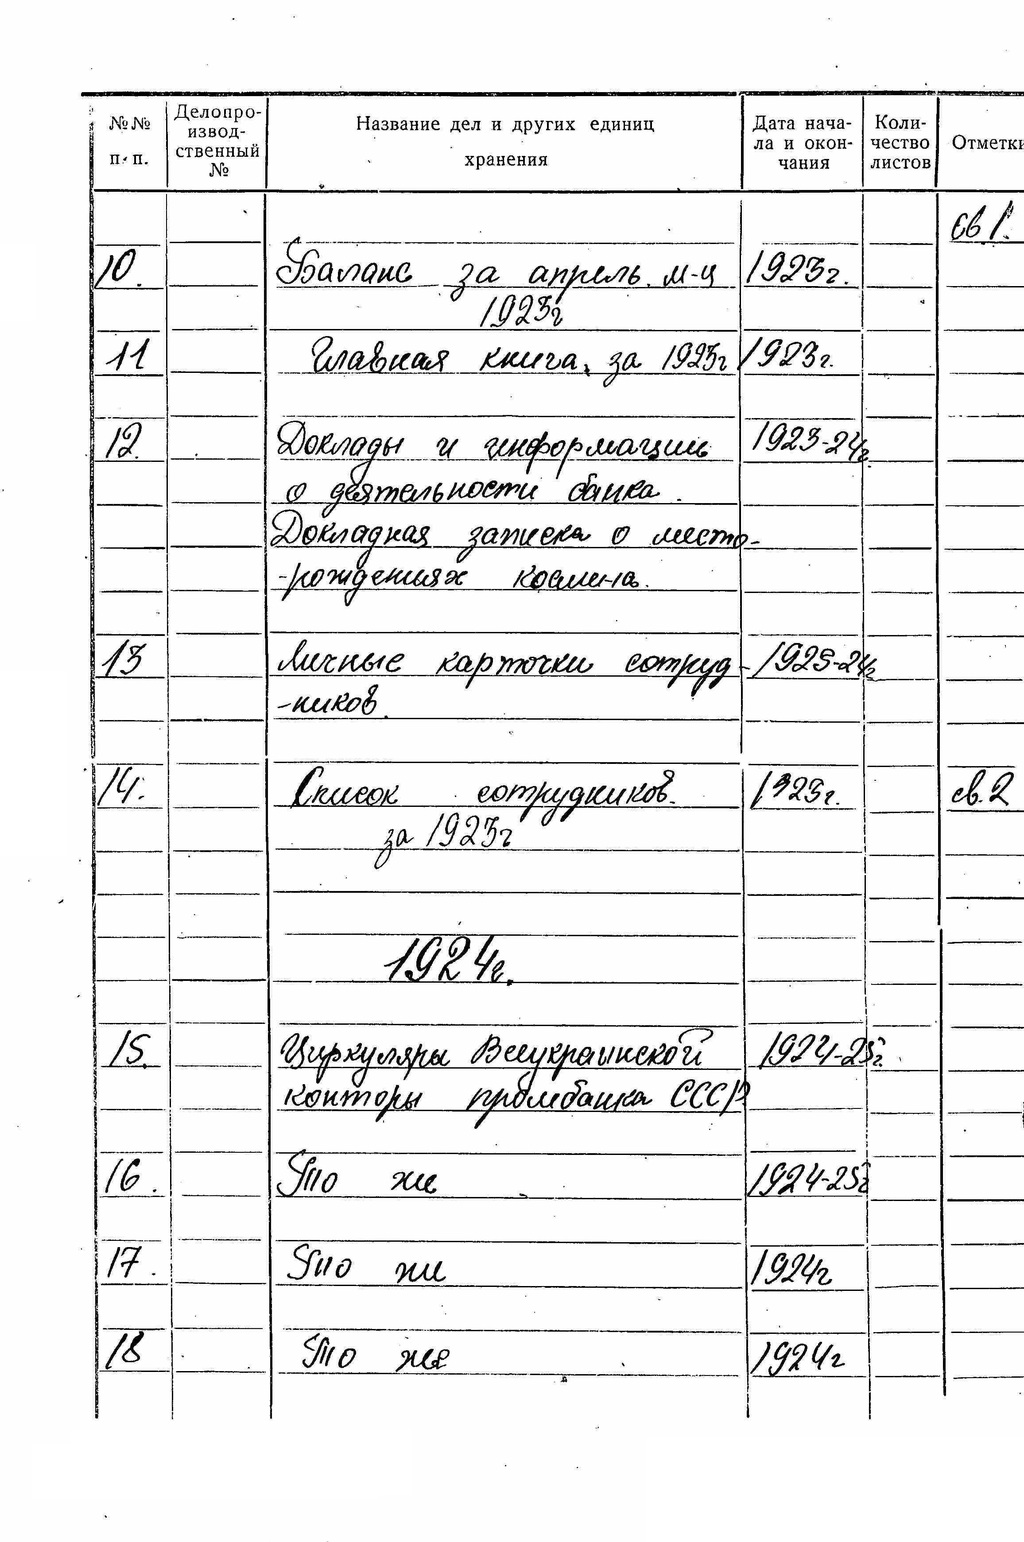 №№ п. п.
Делопроизводственный №
Название дел и других единиц хранения
Дата начала и окончания
Количество листов
Отметки
св 1.
10. Баланс за апрель м-ц 1923г.
1923г
11 Главная книга за 1923г 1923г.
12. Доклады и информации 1923-24г.
о деятельности банка.
Докладная записка о место-
-рождениях
13 Личные карточки сотруд- 1923-24г
-ников.
14. Список сотрудников 1923г. св. 2
за 1923г
1924г.
15. Циркуляры Всеукраинской 1924-25г.
конторы промбанка СССР
16. То же 1924-25г
17. То же 1924г
18 То же 1924г